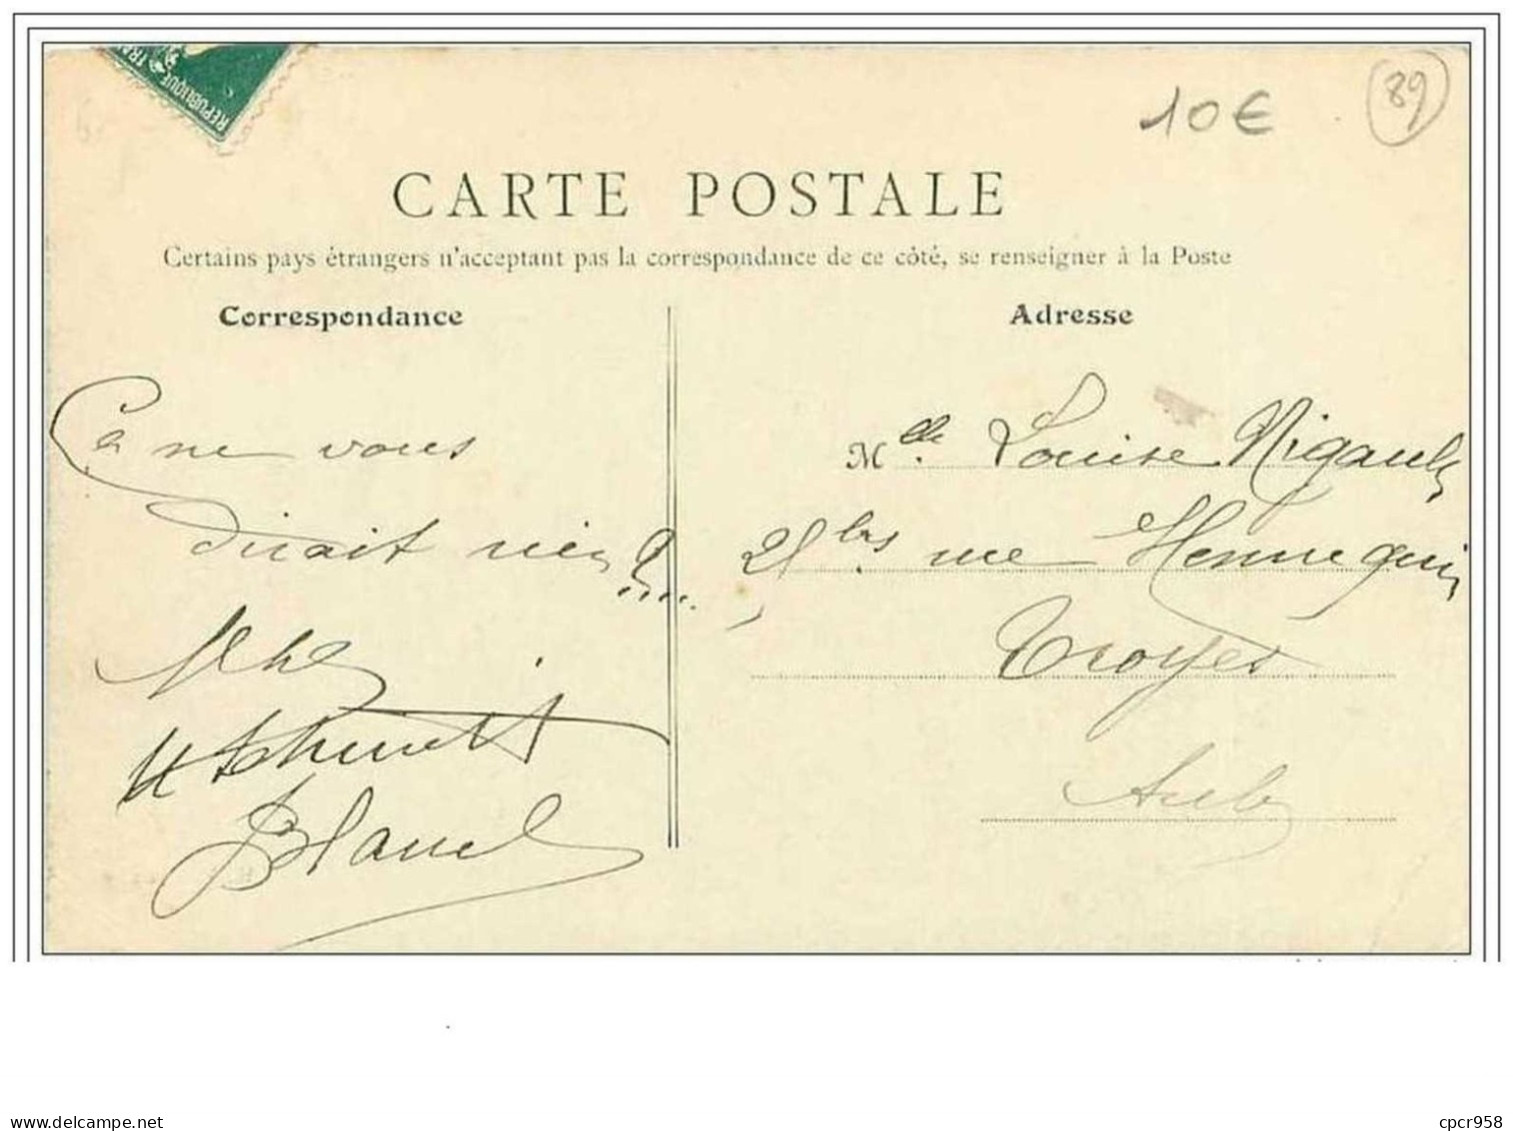 RÉPUBLIQUE FRA
10€
89
CARTE POSTALE
Certains pays étrangers n'acceptant pas la correspondance de ce côté, se renseigner à la Poste
Correspondance
Adresse
Ça ne vous
dirait rien ?....
Blanc
Mlle. Louise Rigault
bis rue Hennequin
Troyes
Aube
cpcr958